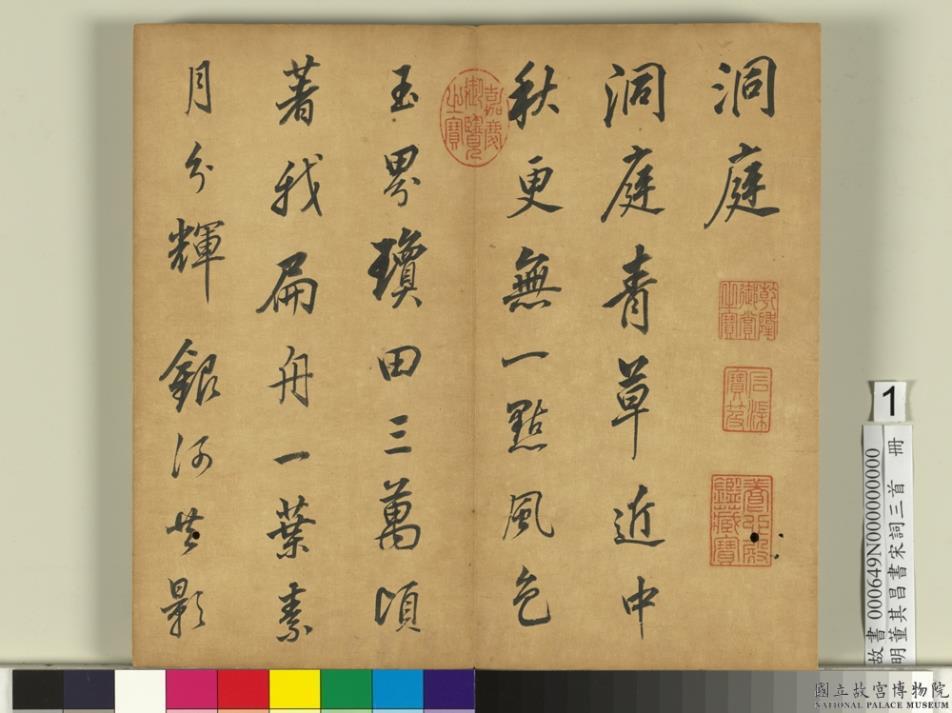 洞庭
洞庭青草近中
秋更無一點風色
玉界瓊田三萬頃
著我扁舟一葉素
月分輝銀河共影
嘉慶御覽之寶
乾隆御賞之寶
石渠寶笈
養心殿鑑藏寶
1
故書 000649N000000000
明董其昌書宋詞三首 冊
國立故宮博物院
NATIONAL PALACE MUSEUM